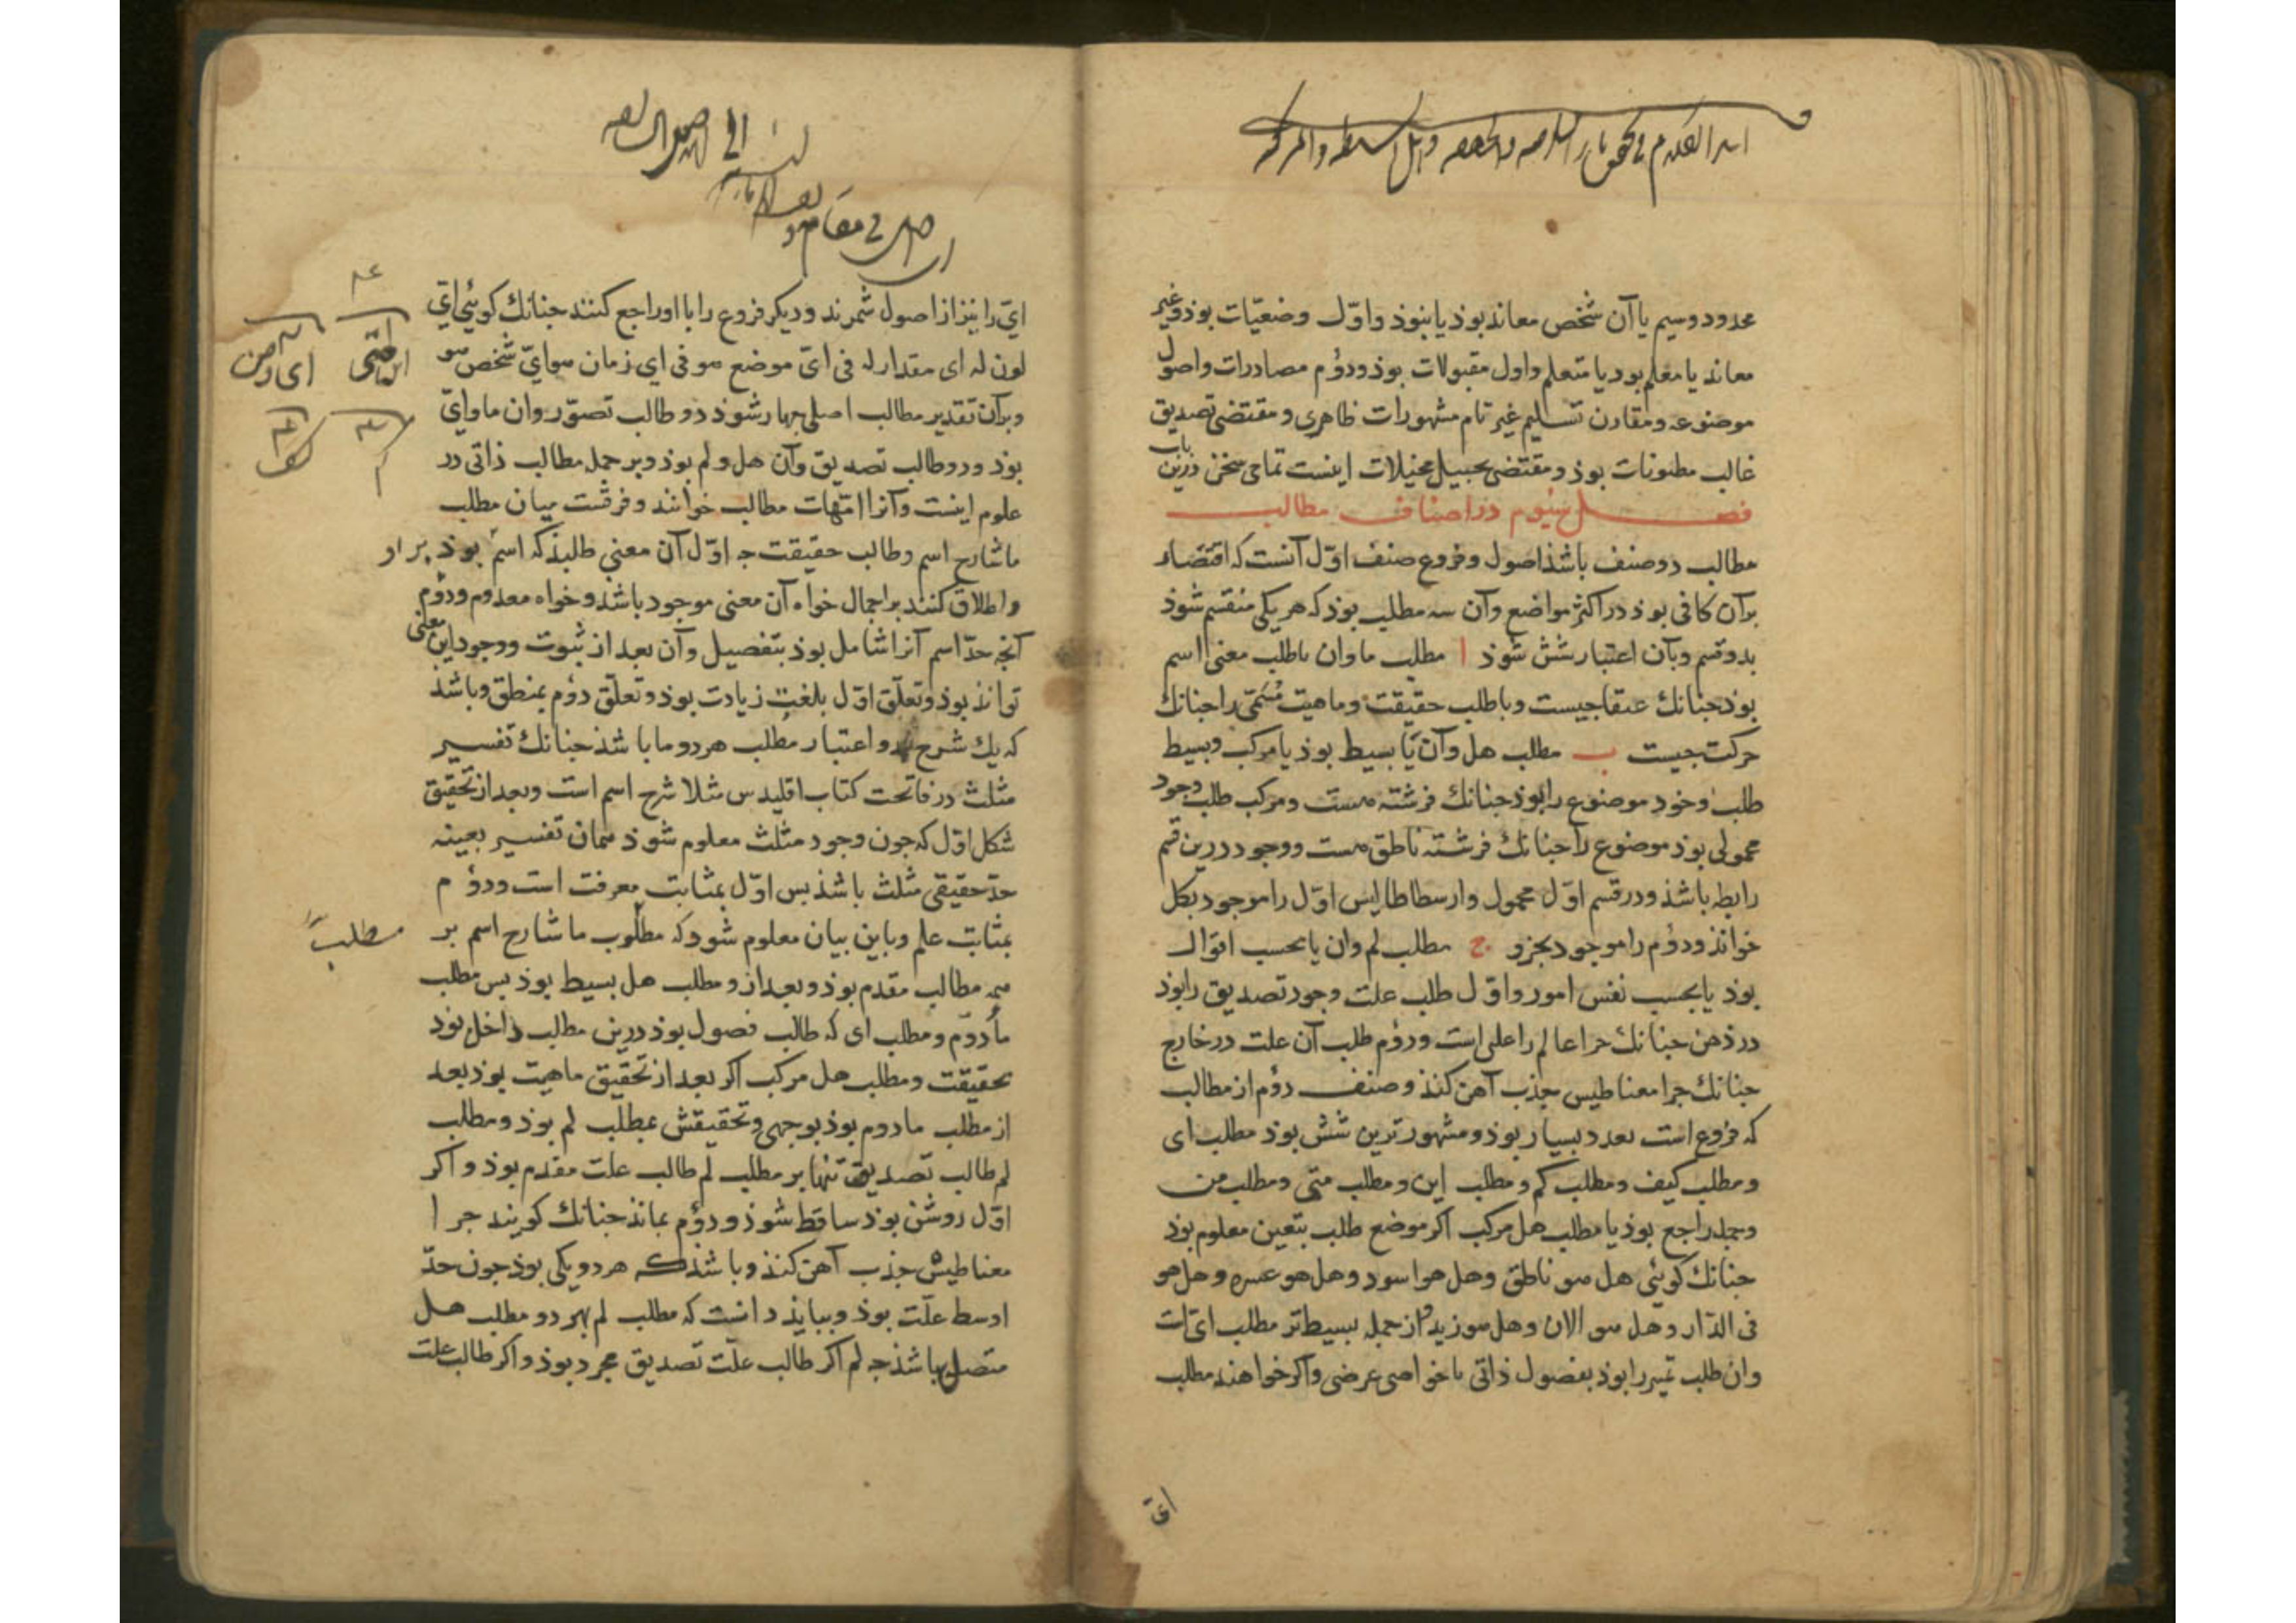 محدود و سیم یا آن شخص معاند بوذ یا نبوذ و اوّل وضعیّات بوذ و غیر
معاند یا معلم بود یا متعلم و اول مقبولات بوذ و دوُم مصادرات و اصول
موضوعه و مقارن تسلیم غیر تام مشهورات ظاهری و مقتضی تصدیق
غالب مظنونات بوذ و مقتضی تخییل مخیلات اینست تمامی سخن درین باب
فصل سیوم در اصناف مطالب
مطالب دو صنف باشذ اصول و فروع صنف اوّل آنست که اقتصار
برآن کافی بوذ در اکثر مواضع وآن سه مطلب بوذ که هر یکی منقسم شوذ
بدو قسم وبآن اعتبار شش شوذ ا مطلب ما وان یا طلب معنی اسم
بوذ جنانك عنقا جیست و یا طلب حقیقت و ماهیت مسمّی را جنانك
حرکت جیست ب مطلب هل وآن یا بسیط بوذ یا مرکب و بسیط
طلب وجود موضوع را بوذ جنانك فرشته هست و مرکب طلب وجود
محمولی بوذ موضوع را جنانك فرشته ناطق هست و وجود درین قسم
رابطه باشذ و در قسم اوّل محمول و ارسطاطالیس اوّل را موجود بکل
خوانذ و دوُم را موجود بجزو ج مطلب لم وان یا بحسب اقوال
بوذ یا بحسب نفس امور و اوّل طلب علت وجود تصدیق را بوذ
در ذهن جنانك جرا عالم را علی است و دوُم طلب آن علت در خارج
جنانك جرا مغناطیس جذب آهن کنذ و صنف دوُم از مطالب
که فروع است بعدد بسیار بوذ و مشهورترین شش بوذ مطلب ای
و مطلب کیف و مطلب کم و مطلب این و مطلب متی و مطلب من
و جمله راجع بوذ با مطلب هل مرکب اکر موضع طلب بتعین معلوم بوذ
جنانك کویئی هل هو ناطق وهل هو اسود وهل هو عشره وهل هو
فی الدّار وهل هو الان وهل هو زید و از جمله بسیط تر مطلب ایّ است
وان طلب تمییز را بوذ بفصول ذاتی یا خواص عرضی و اکر خواهند مطلب
ایّ
ایّ را نیز از اصول شمرند و دیکر فروع را با او راجع کنند جنانك کویئی ایّ
لون له ای مقدار له فی ایّ موضع هو فی ای زمان هو ایّ شخص هو
و برآن تقدیر مطالب اصلی جهار شوذ دو طالب تصوّر وان ما و ایّ
بوذ و دو طالب تصدیق وآن هل و لم بوذ و بر جمله مطالب ذاتی در
علوم اینست وآنرا امّهات مطالب خوانند و فرقست میان مطلب
ما شارح اسم و طالب حقیقت جه اوّل آن معنی طلبذ که اسم بوذ بر او
و اطلاق کنند بر اجمال خواه آن معنی موجود باشذ و خواه معدوم و دوُم
آنجه حدّ اسم آنرا شامل بوذ بتفصیل وآن بعد از ثبوت و وجود این معنی
توانذ بوذ و تعلّق اوّل بلغت زیادت بوذ و تعلّق دوُم بمنطق و باشذ
که یك شرح بدو اعتبار مطلب هر دو ما باشذ جنانك تفسیر
مثلث در فاتحت کتاب اقلیدس مثلا شرح اسم است و بعد از تحقیق
شکل اوّل که جون وجود مثلث معلوم شوذ همان تفسیر بعینه
حدّ حقیقی مثلث باشذ بس اوّل بمثابت معرفت است و دوُم
بمثابت علم و باین بیان معلوم شود که مطلوب ما شارح اسم بر
همه مطالب مقدم بوذ و بعد از و مطلب هل بسیط بوذ بس مطلب
ما دوّم و مطلب ای که طالب فصول بوذ درین مطلب داخل بوذ
بحقیقت و مطلب هل مرکب اکر بعد از تحقیق ماهیت بوذ بعد
از مطلب ما دوم بوذ بوجهی و تحقیقش بمطلب لم بوذ و مطلب
لم طالب تصدیق تنها بر مطلب لم طالب علت مقدم بوذ و اکر
اوّل روشن بوذ ساقط شوذ و دوُم بماند جنانك کویند جرا
مغناطیس جذب آهن کنذ و باشذ که هر دو یکی بوذ جون حدّ
اوسط علّت بوذ و ببایذ دانست که مطلب لم بهر دو مطلب هل
متصل باشذ جه لم اکر طالب علّت تصدیق مجرد بوذ و اکر طالب علت
مطلب